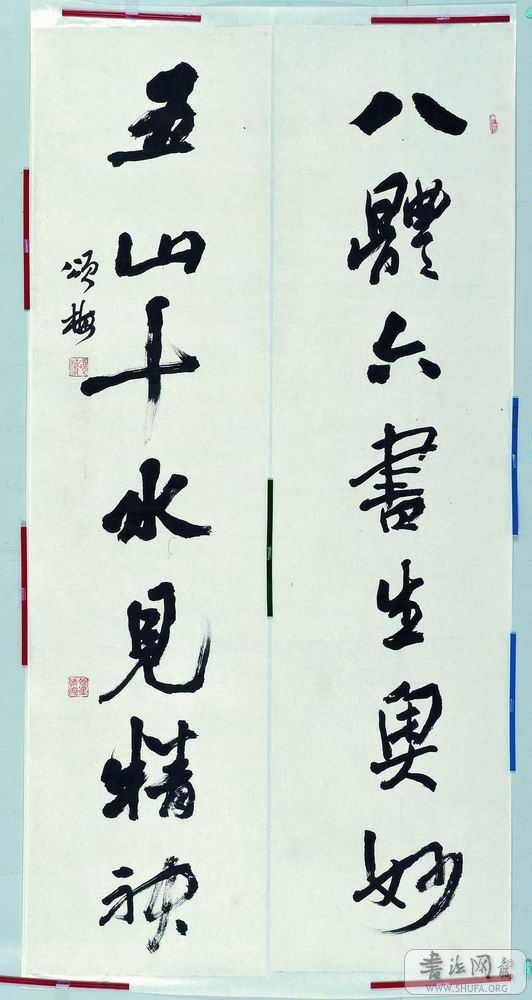 八體六書生奧妙
五山千水見精神
頌梅
書法网
WWW.SHUFA.ORG